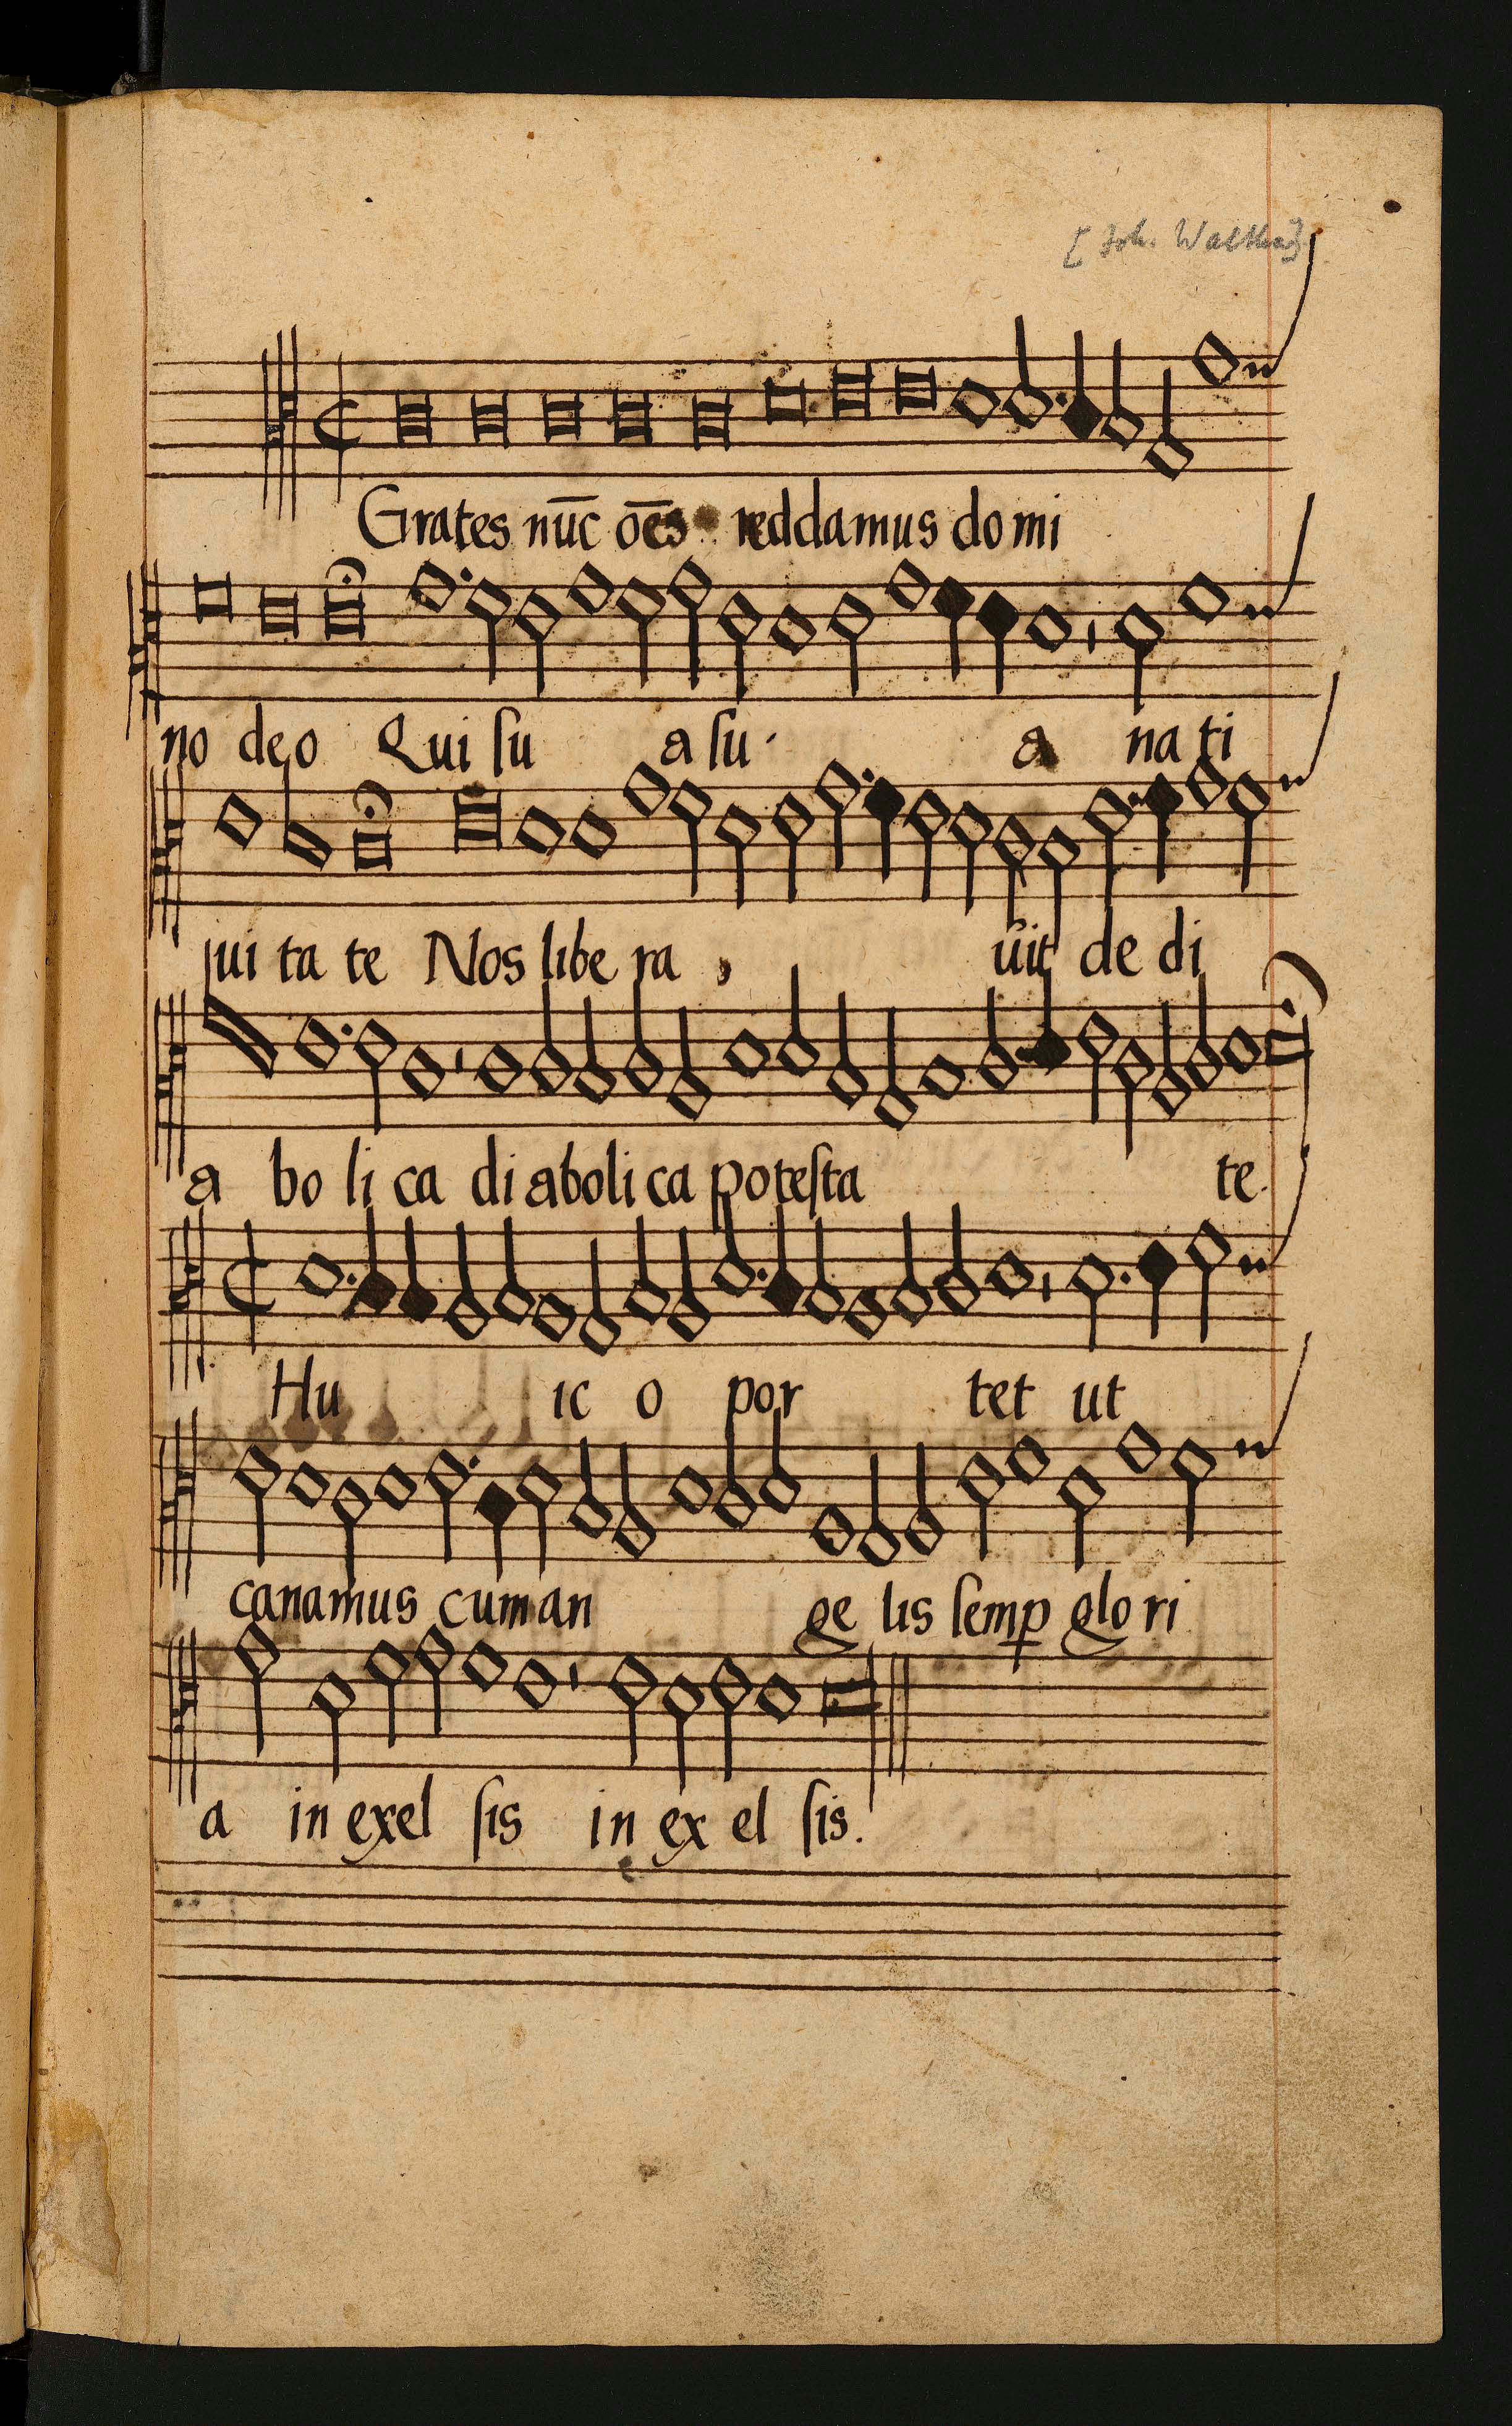 [Joh. Walther]
Grates nūc ōes reddamus do mi
no deo Qui ſu a ſu a na ti
ui ta te Nos libe ra uit de di
a bo li ca di aboli ca poteſta te.
Hu ic o por tet ut
canamus cum an ge lis ſemꝑ glo ri
a in exel ſis in ex el ſis.